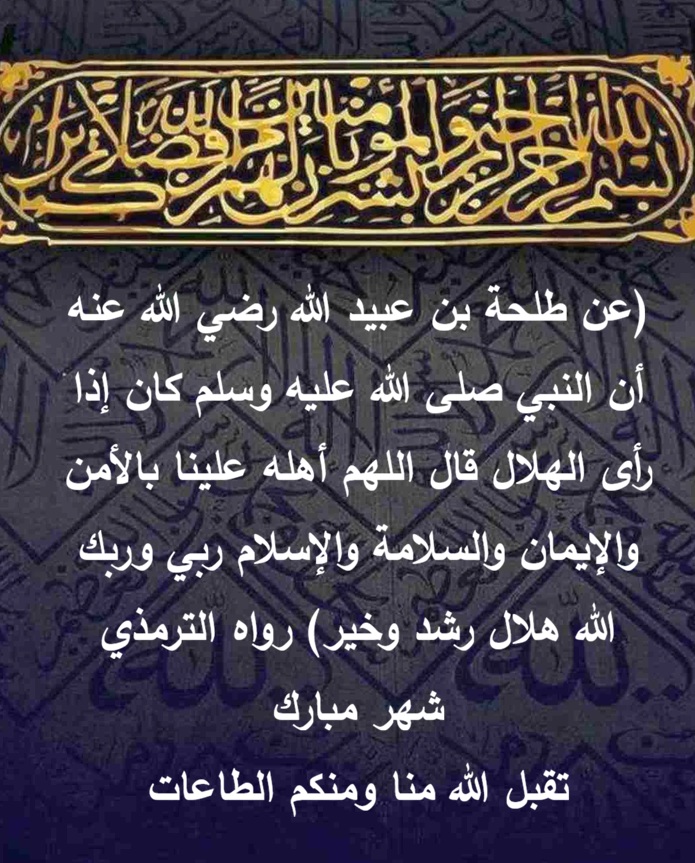 بسم الله الرحمن الرحيم وبشر المؤمنين بأن لهم من الله فضلا كبيرا
(عن طلحة بن عبيد الله رضي الله عنه
أن النبي صلى الله عليه وسلم كان إذا
رأى الهلال قال اللهم أهله علينا بالأمن
والإيمان والسلامة والإسلام ربي وربك
الله هلال رشد وخير) رواه الترمذي
شهر مبارك
تقبل الله منا ومنكم الطاعات